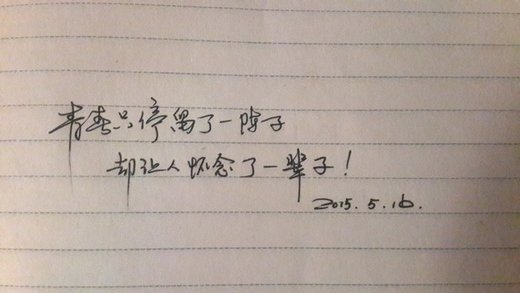 青春只停留了一阵子
却让人怀念了一辈子！
2015.5.16.